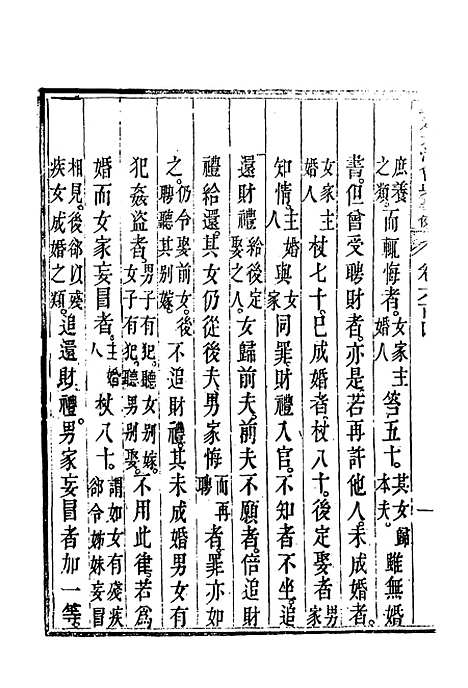 庶養之類。而輒悔者。女家主婚人笞五十。其女歸本夫。雖無婚
書。但曾受聘財者。亦是。若再許他人。未成婚者。
女家主婚人杖七十。已成婚者。杖八十。後定娶者。男家
知情。主婚人與女家同罪。財禮入官。不知者。不坐。追
還財禮。給後定娶之人。女歸前夫。前夫不願者。倍追財
禮給還。其女仍從後夫。男家悔而再聘者。罪亦如
之。仍令娶前女。後聘聽其別嫁。不追財禮。其未成婚男女有
犯姦盜者。男子有犯。聽女別嫁。女子有犯。聽男別娶。不用此律。若爲
婚而女家妄冒者。主婚人杖八十。謂如女有殘疾卻令姊妹妄冒
相見。後卻以殘疾女成婚之類。追還財禮。男家妄冒者。加一等。